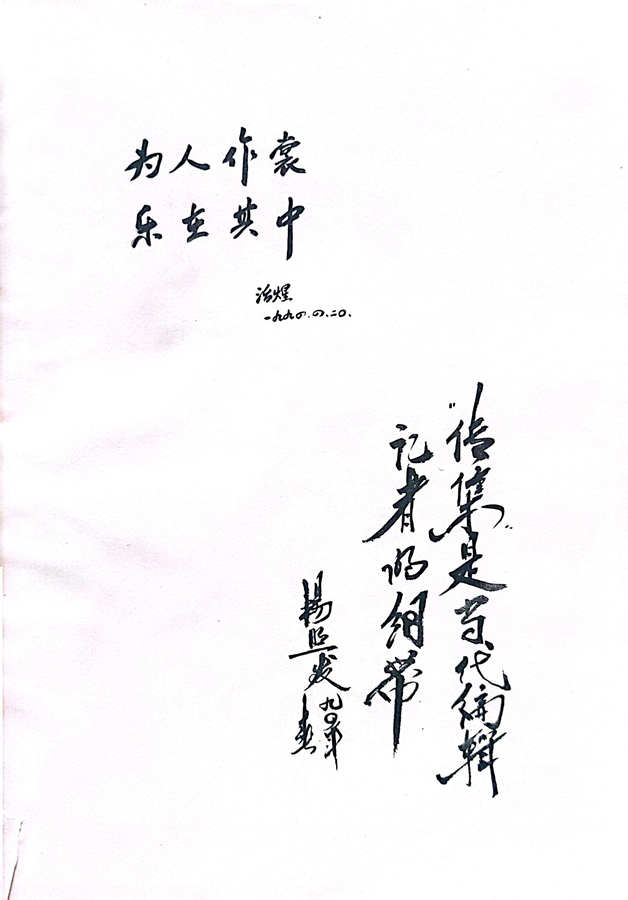 为人作裳
乐在其中
一九九〇.四.二〇.
“传集”是当代编辑
记者的纽带
楊发
九〇年
春